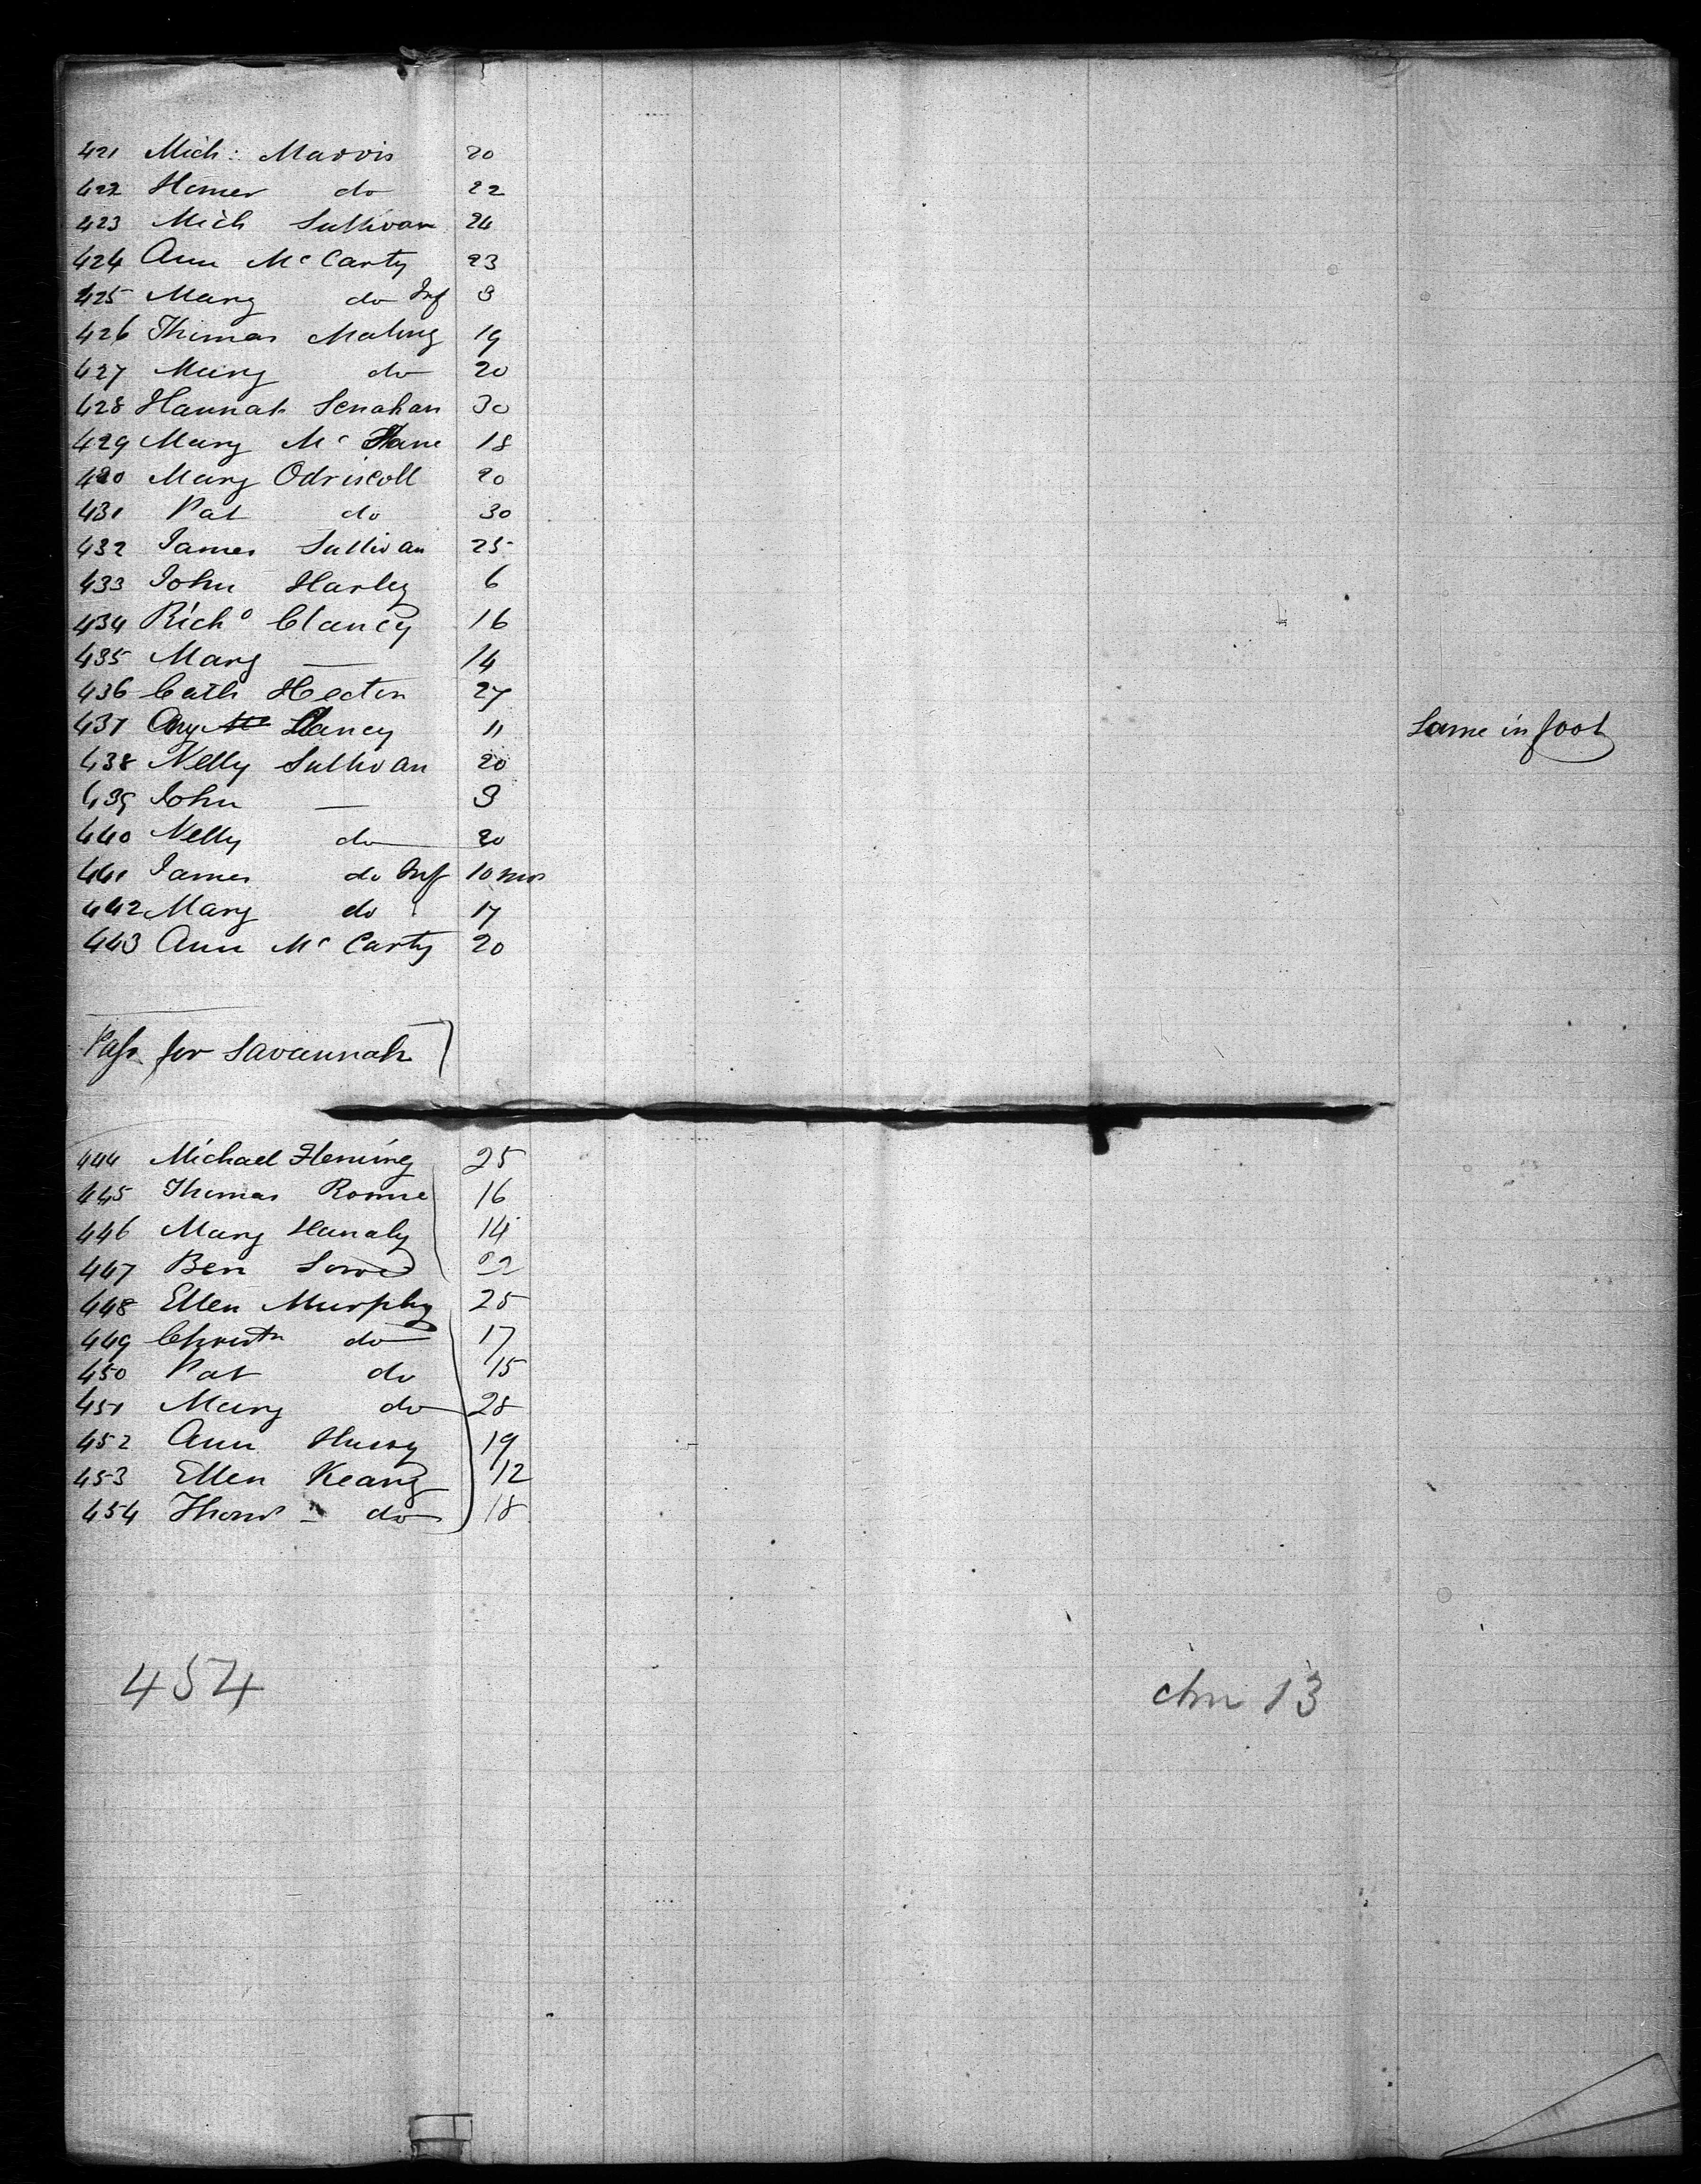 421 Mich: Marvis 20
422 Homer do 22
423 Mich Sullivan 24
424 Ann Mc Carty 23
425 Mary do Inf 3
426 Thomas Malony 19
427 Mary do 20
428 Hannah Lenahan 30
429 Mary Mc 18
430 Mary Odriscoll 20
431 Pat do 30
432 James Sullivan 25
433 John Harley 6
434 Richd Clancy 16
435 Mary — 14
436 Cath Hector 27
437 Clancy 11 Lame in foot
438 Nelly Sullivan 20
439 John — 3
440 Nelly do 20
441 James do Inf 10 mos
442 Mary do 17
443 Ann Mc Carty 20
Pass for Savannah
444 Michael Fleming 25
445 Thomas Romne 16
446 Mary Hanaly 14
447 Ben 22
448 Ellen Murphy 25
449 Christn do 17
450 Pat do 15
451 Mary do 28
452 Ann Hussy 19
453 Ellen Keary 12
454 Thoms - do 18
454 13